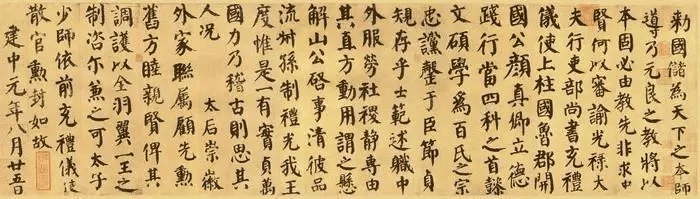 勅國儲為天下之本師
導乃元良之教將以
本固必由教先非求中
賢何以審諭光祿大
夫行吏部尚書充禮
儀使上柱國魯郡開
國公顏真卿立德
踐行當四科之首懿
文碩學為百氏之宗
忠讜罄于臣節貞
規存乎士範述職中
外服勞社稷靜專由
其直方動用謂之懸
解山公啓事清彼品
流叔孫制禮光我王
度惟是一有實貞萬
國力乃稽古則思其
人况 太后崇徽
外家聯属顧先勲
舊方睦親賢俾其
調護以全羽翼一王之
制咨尔兼之可太子
少師依前充禮儀使
散官勲封如故
建中元年八月廿五日